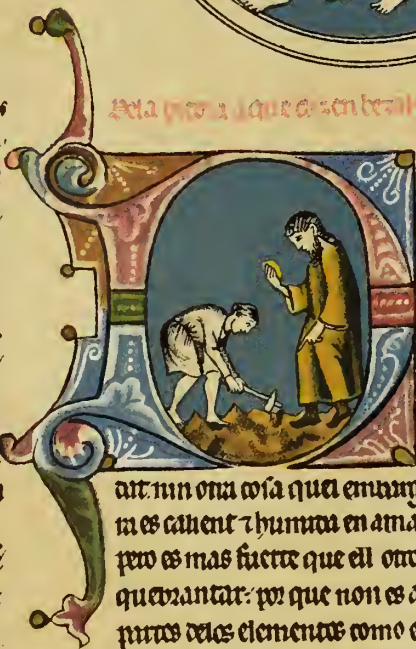 Dela piedra a que dizen bezah
dat. nin otra cosa quel embarg
ra es calient ⁊ humida en ama
pero es mas fuerte que ell otro
quebrantar: por que non es a
partes delos elementos como e